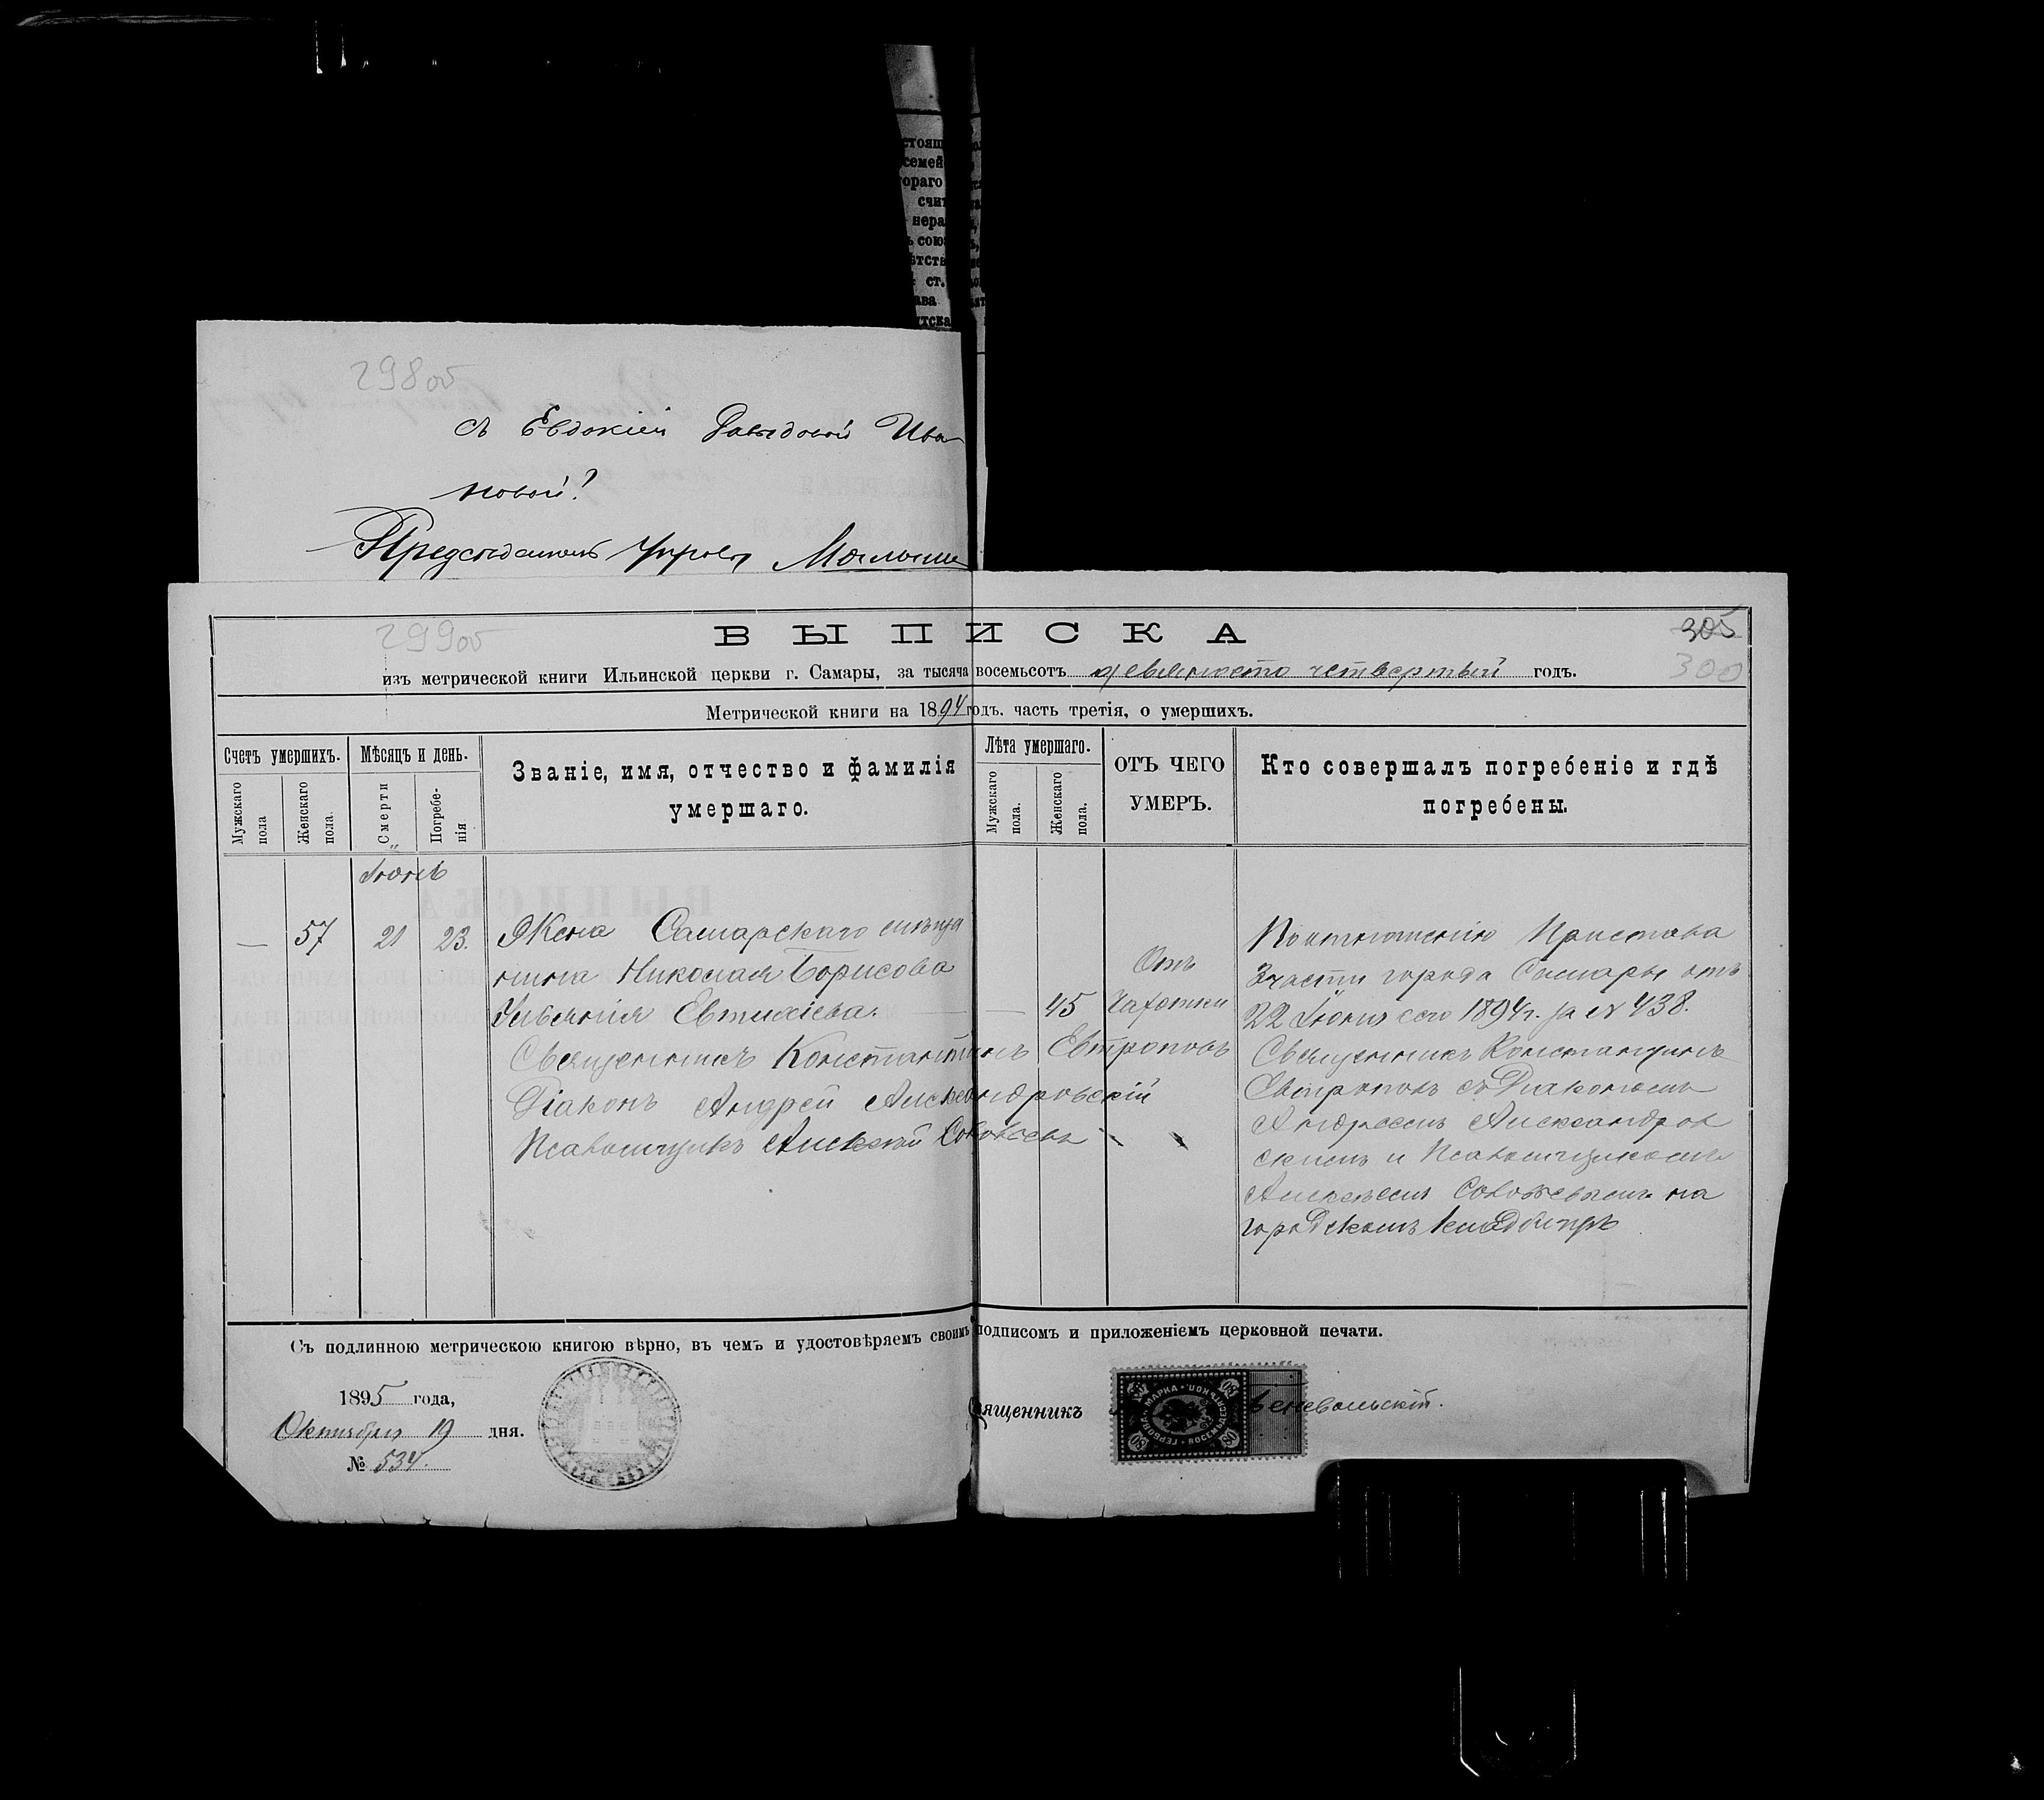 стоящ
семей
тораго
счит
нера
ъ сою
ѣтств
ст.
ава
тска
298об
съ Евдокіей Давыдовой Ива-
новой?
Предсѣдатель Управы
299об
ВЫПИСКА
305
300
изъ метрической книги Ильинской церкви г. Самары, за тысяча восемьсотъ девяносто четвертый годъ.
Метрической книги на 1894 годъ. часть третія, о умершихъ.
Счетъ умершихъ.
Мужскаго пола
Женскаго пола.
Мѣсяцъ и день.
Смерти
Погребе-
нія
Званіе, имя, отчество и фамилія
умершаго.
Лѣта умершаго.
Мужскаго пола.
Женскаго пола.
ОТЪ ЧЕГО
УМЕРЪ.
Кто совершалъ погребеніе и гдѣ
погребены.
Іюнь
— 57 21 23.
Жена Самарскаго мѣща
нина Николая Борисова
Ульянія Евтихіева.
— 45
Отъ
Чахотки
Священникъ Константинъ Евтроповъ
Діаконъ Андрей Александровскій
Псаломщикъ Алексѣй Соловьевъ
По отношенію Пристава
3 части города Самары отъ
22 Іюня сего 1894 г. за № 438.
Священникъ Константинъ
Евтроповъ съ Діакономъ
Андреемъ Александров
скимъ и Псаломщикомъ
Алексѣемъ Соловьевымъ на
городскомъ кладбищѣ
Съ подлинною метрическою книгою вѣрно, въ чемъ и удостовѣряемъ своимъ подписомъ и приложеніемъ церковной печати.
1895 года,
Октября 19 дня.
№ 534.
Священникъ
ГЕРБОВАЯ МАРКА
80